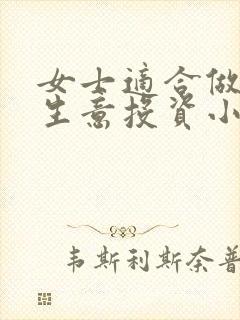 女士適合做
生意投資小
韦斯利斯奈普